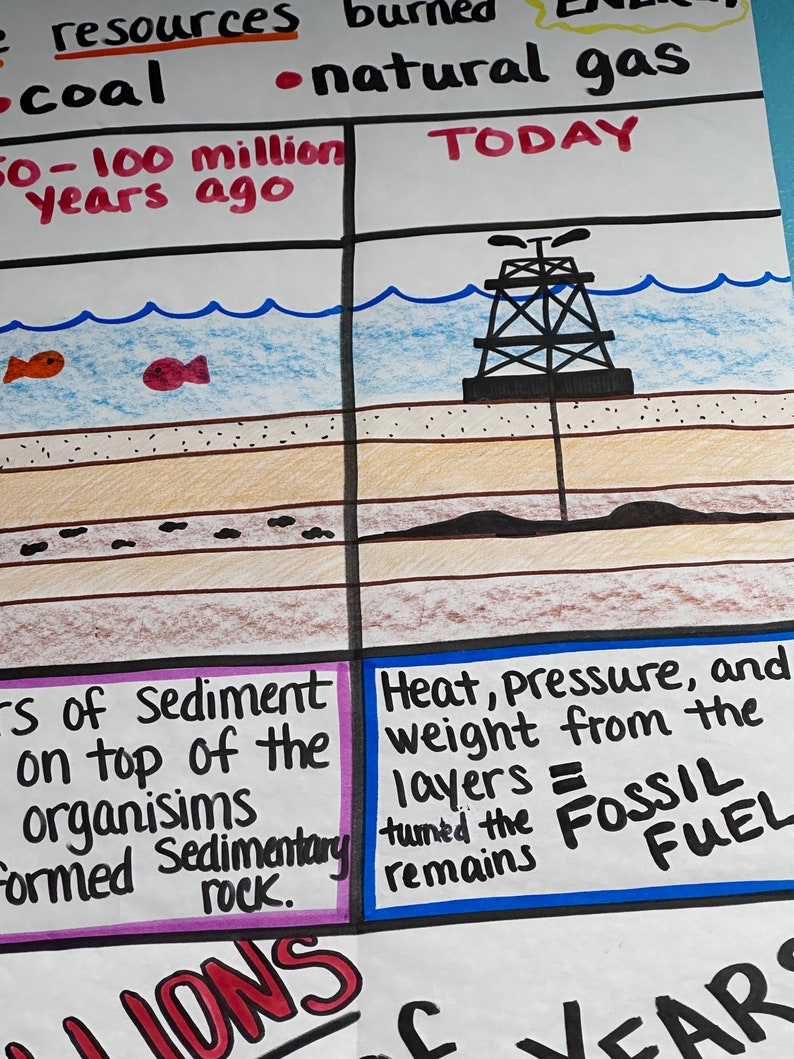 resources burned ENERGY
• coal • natural gas
50-100 million
years ago
TODAY
of sediment
on top of the
organisims
formed Sedimentary
rock.
Heat, pressure, and
weight from the
layers =
turned the
remains
FOSSIL
FUEL
OF YEARS